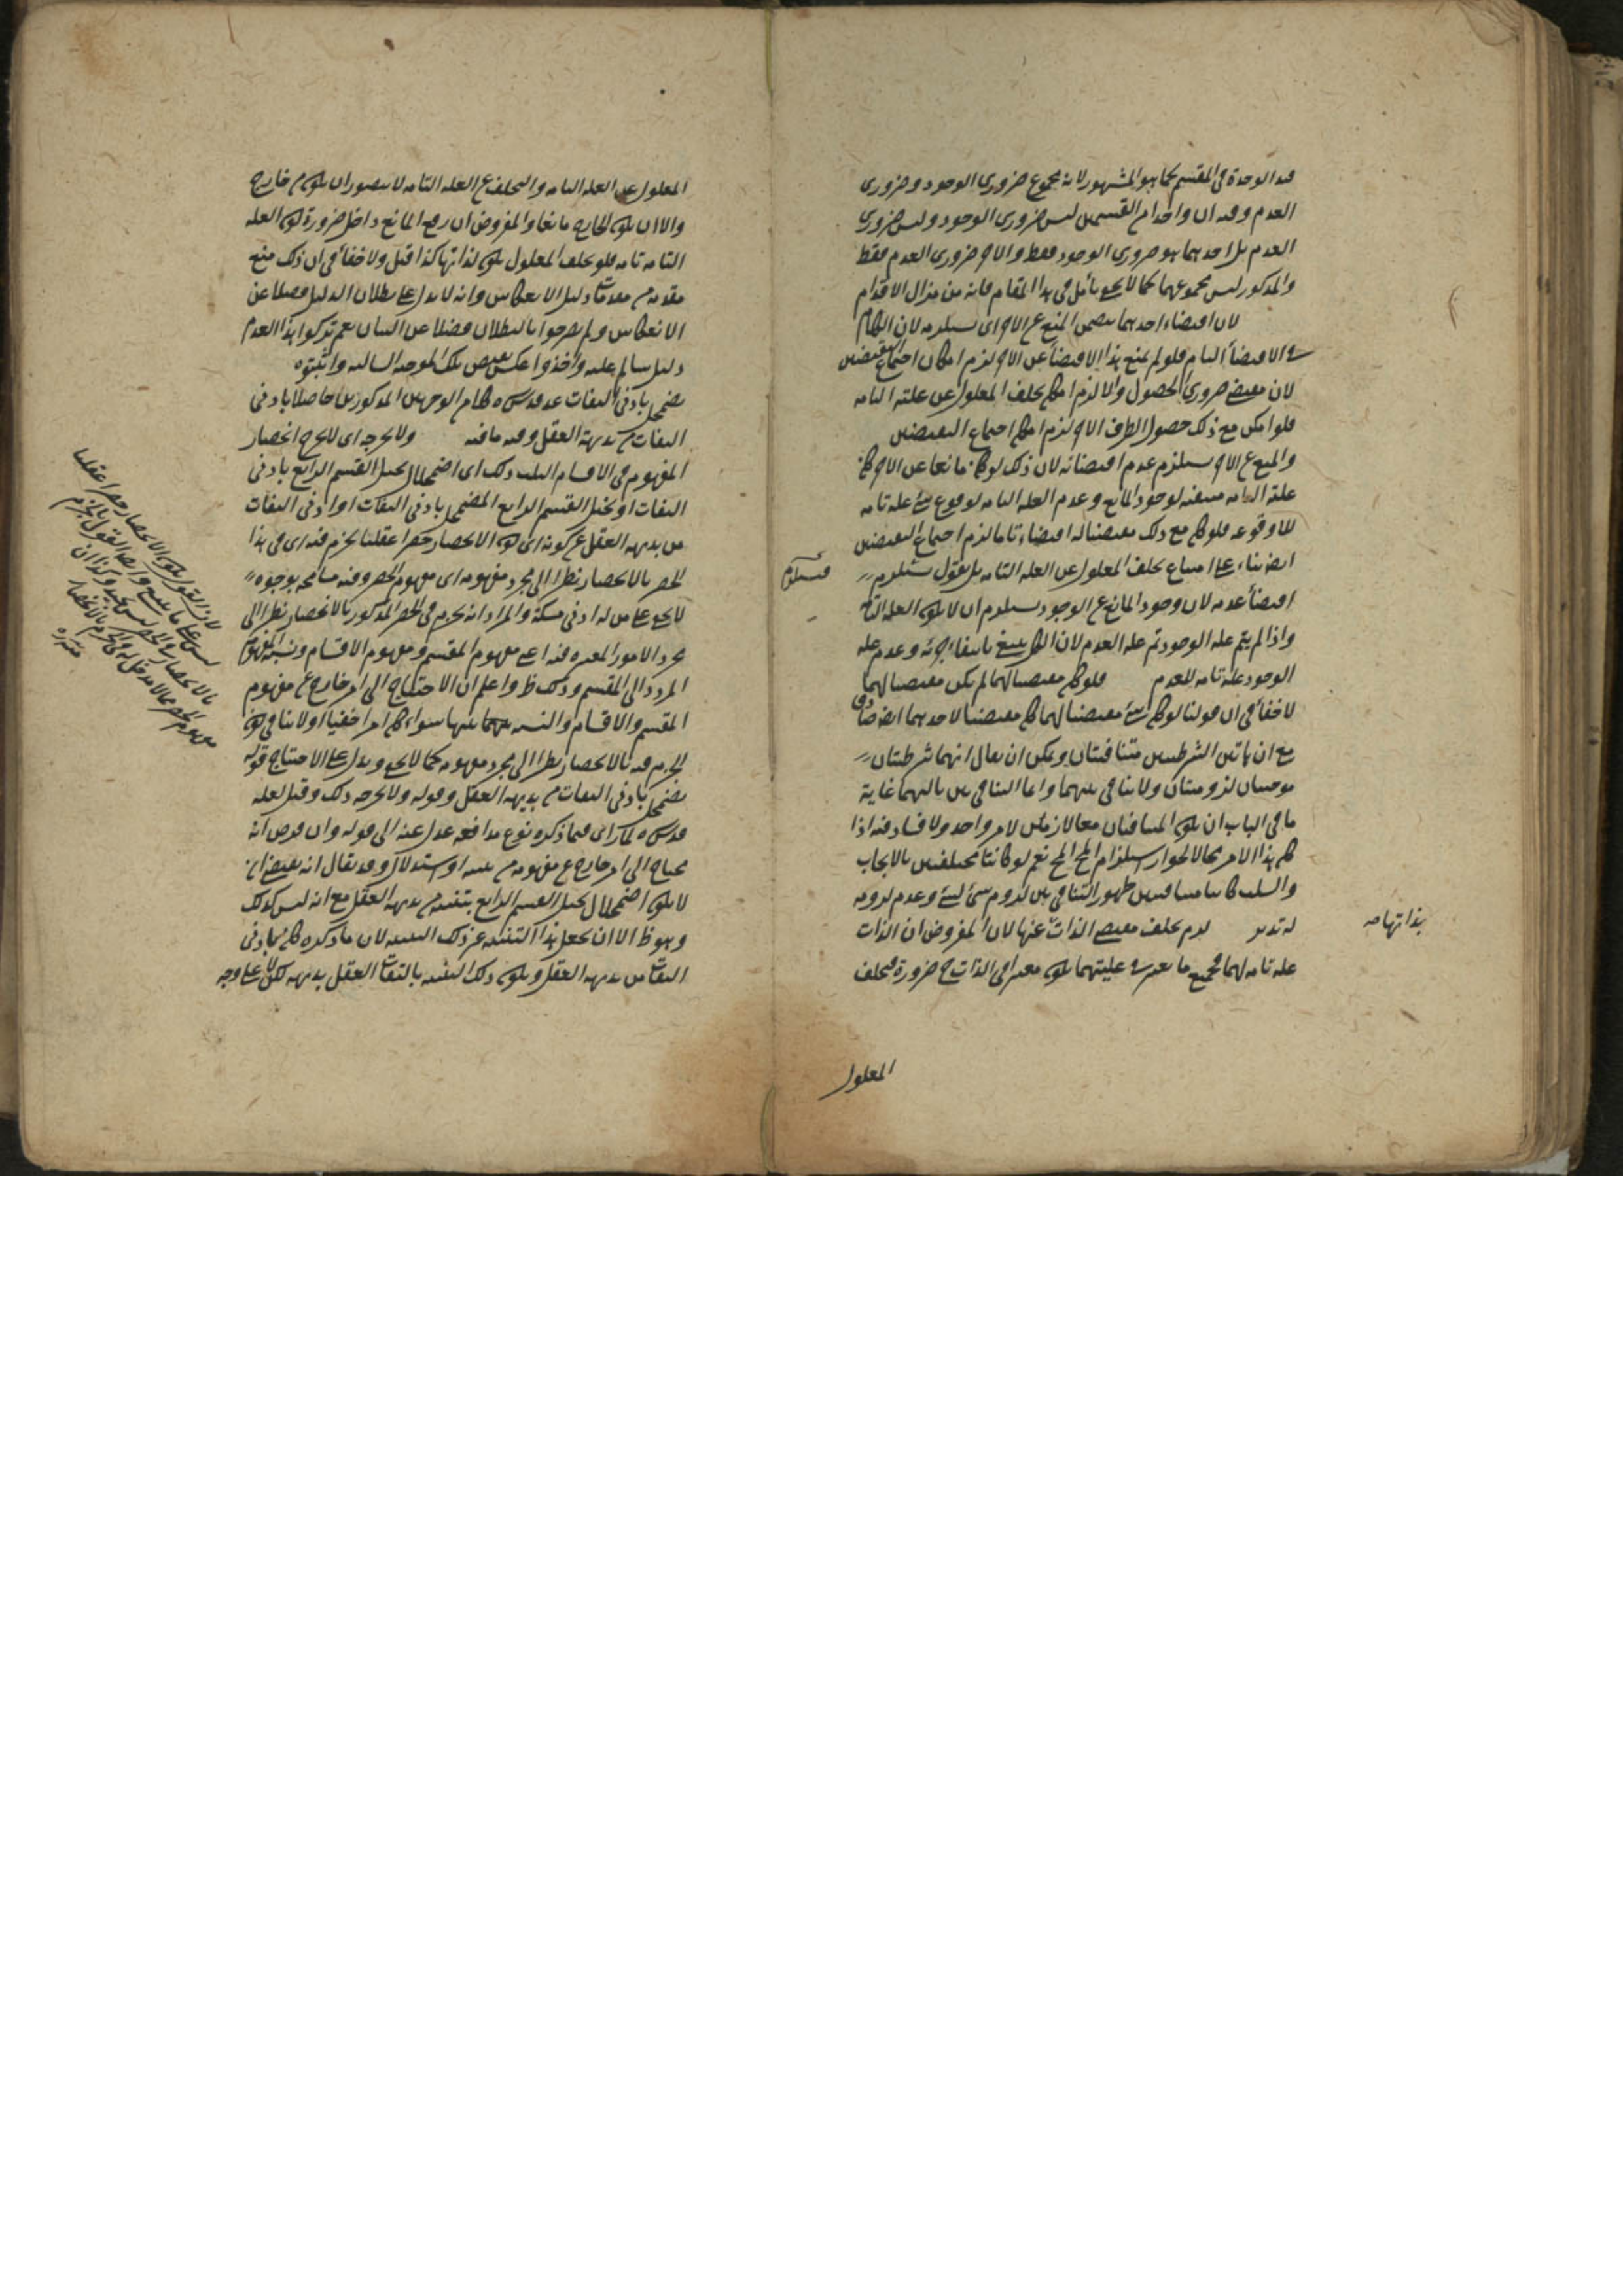 قيد الوحدة في المقسم كما هو المشهور لانه مجموع ضروري الوجود وضروري
العدم وفيه ان واحدا من القسمين ليس ضروري الوجود وليس ضروري
العدم بل احدهما هو ضروري الوجود فقط والاخر ضروري العدم فقط
والمذكور ليس مجموعهما كما لا يخفى تأمل في هذا المقام فانه من مزال الاقدام
لان اقتضاء احدهما يتضمن المنع عن الاخر اي يستلزمه لان الكلام
في الاقتضاء التام فلو لم يمنع هذا الاقتضاء عن الاخر لزم امكان اجتماع النقيضين
لان مقتضى ضروري الحصول والا لزم امكان تخلف المعلول عن علته التامة
فلو امكن مع ذلك حصول الطرف الاخر لزم امكان اجتماع النقيضين
والمنع عن الاخر يستلزم عدم اقتضائه لان ذلك لو كان مانعا عن الاخر كان
علته التامة منتفية لوجود المانع وعدم العلة التامة لوقوع شئ علة تامة
للاوقوعه فلو كان مع ذلك مقتضيا له اقتضاء تاما لزم اجتماع النقيضين
ايضا بناء على امتناع تخلف المعلول عن العلة التامة بل نقول يستلزم
اقتضاء عدمه لان وجود المانع عن الوجود يستلزم ان لا يكون العلة التامة
واذا لم يتم علة الوجود تم علة العدم لان الكل ينتفي بانتفاء جزئه وعدم علة
الوجود علة تامة للعدم فلو كان مقتضيا لهما لم يكن مقتضيا لهما
لا خفاء في ان قولنا لو كان شئ مقتضيا لهما كان مقتضيا لاحدهما ايضا صادق
مع ان هاتين الشرطيتين متنافيتان ويمكن ان يقال انهما شرطيتان
موجبتان لزوميتان ولا تنافي بينهما وانما التنافي بين تاليهما غاية
ما في الباب ان يكون المتنافيان معا لازمين لامر واحد ولا فساد فيه اذا
كان هذا الامر محالا لجواز استلزام المح المح نعم لو كانتا مختلفتين بالايجاب
والسلب كانتا متنافيتين لظهور التنافي بين لزوم شئ لشئ وعدم لزومه
له تدبر لزم تخلف مقتضى الذات عنها لان المفروض ان الذات
علة تامة لهما فجميع ما يعتبر في عليتهما يكون معتبرا في الذات ح ضرورة فتخلف
فيستلزم
بذاتها صح
المعلول
المعلول عن العلة التامة والتخلف عن العلة التامة لا يتصور ان يكون من خارج
والا ان يكون الخارج مانعا والمفروض ان رفع المانع داخل ضرورة كون العلة
التامة تامة فلو تخلف المعلول يكون لذاتها كذا قيل ولا خفاء في ان ذلك منع
مقدمة من مقدمات دليل الانعكاس وانه لا يدل على بطلان الدليل فضلا عن
الانعكاس ولم يصرحوا بالبطلان فضلا عن البيان نعم تركوا هذا العدم
دليل سالم عليه واخذوا عكس نقيض تلك الموجبة السالبة واثبتوه
يضمحل بادنى التفات عد قدس سره كلام الوجهين المذكورين حاصلا بادنى
التفات من بديهة العقل وفيه ما فيه ولا يخرجه اي لا يخرج انحصار
المفهوم في الاقسام الثلث ذلك اي اضمحلال تخيل القسم الرابع بادنى
التفات او تخيل القسم الرابع المضمحل بادنى التفات او ادنى التفات
من بديهة العقل عن كونه اي كون الانحصار حصرا عقليا يجزم فيه اي في هذا
الحصر بالانحصار نظرا الى مجرد مفهومه اي مفهوم الحصر وفيه مسامحة بوجوه
لا يخفى على من له ادنى مسكة والمراد انه يجزم في الحصر المذكور بالانحصار نظرا الى
مجرد الامور المعتبرة فيه اعني مفهوم المقسم ومفهوم الاقسام ونسبة المفهوم
المردد الى المقسم وذلك ظ واعلم ان الاحتياج الى امر خارج عن مفهوم
المقسم والاقسام والنسبة بينهما سواء كان امرا خفيا او لا ينافي كون
الجزم فيه بالانحصار نظرا الى مجرد مفهومه كما لا يخفى ويدل على الاحتياج قوله
يضمحل بادنى التفات من بديهة العقل وقوله ولا يخرجه ذلك وقيل لعله
قدس سره لما رأى فيما ذكره نوع مدافعة عدل عنه الى قوله وان فرض انه
محتاج الى امر خارج عن مفهومه من تنبيه او استدلال وقد يقال انه يقتضي ان
لا يكون اضمحلال تخيل القسم الرابع بتنبيه من بديهة العقل مع انه ليس كذلك
وهو ظ الا ان يجعل هذا التنبيه غير ذلك التنبيه لان ما ذكره كان بادنى
التفات من بديهة العقل ويكون ذلك التنبيه بالتفات العقل بديهة لكن لا على وجه
لان القول بكون الانحصار حصرا عقليا
ليس على ما ينبغي وايضا القول بالجزم
بالانحصار في الحصر ليس بجيد وكذا ان
مفهوم الحصر مما لا مدخل له في الجزم بالانحصار
منه